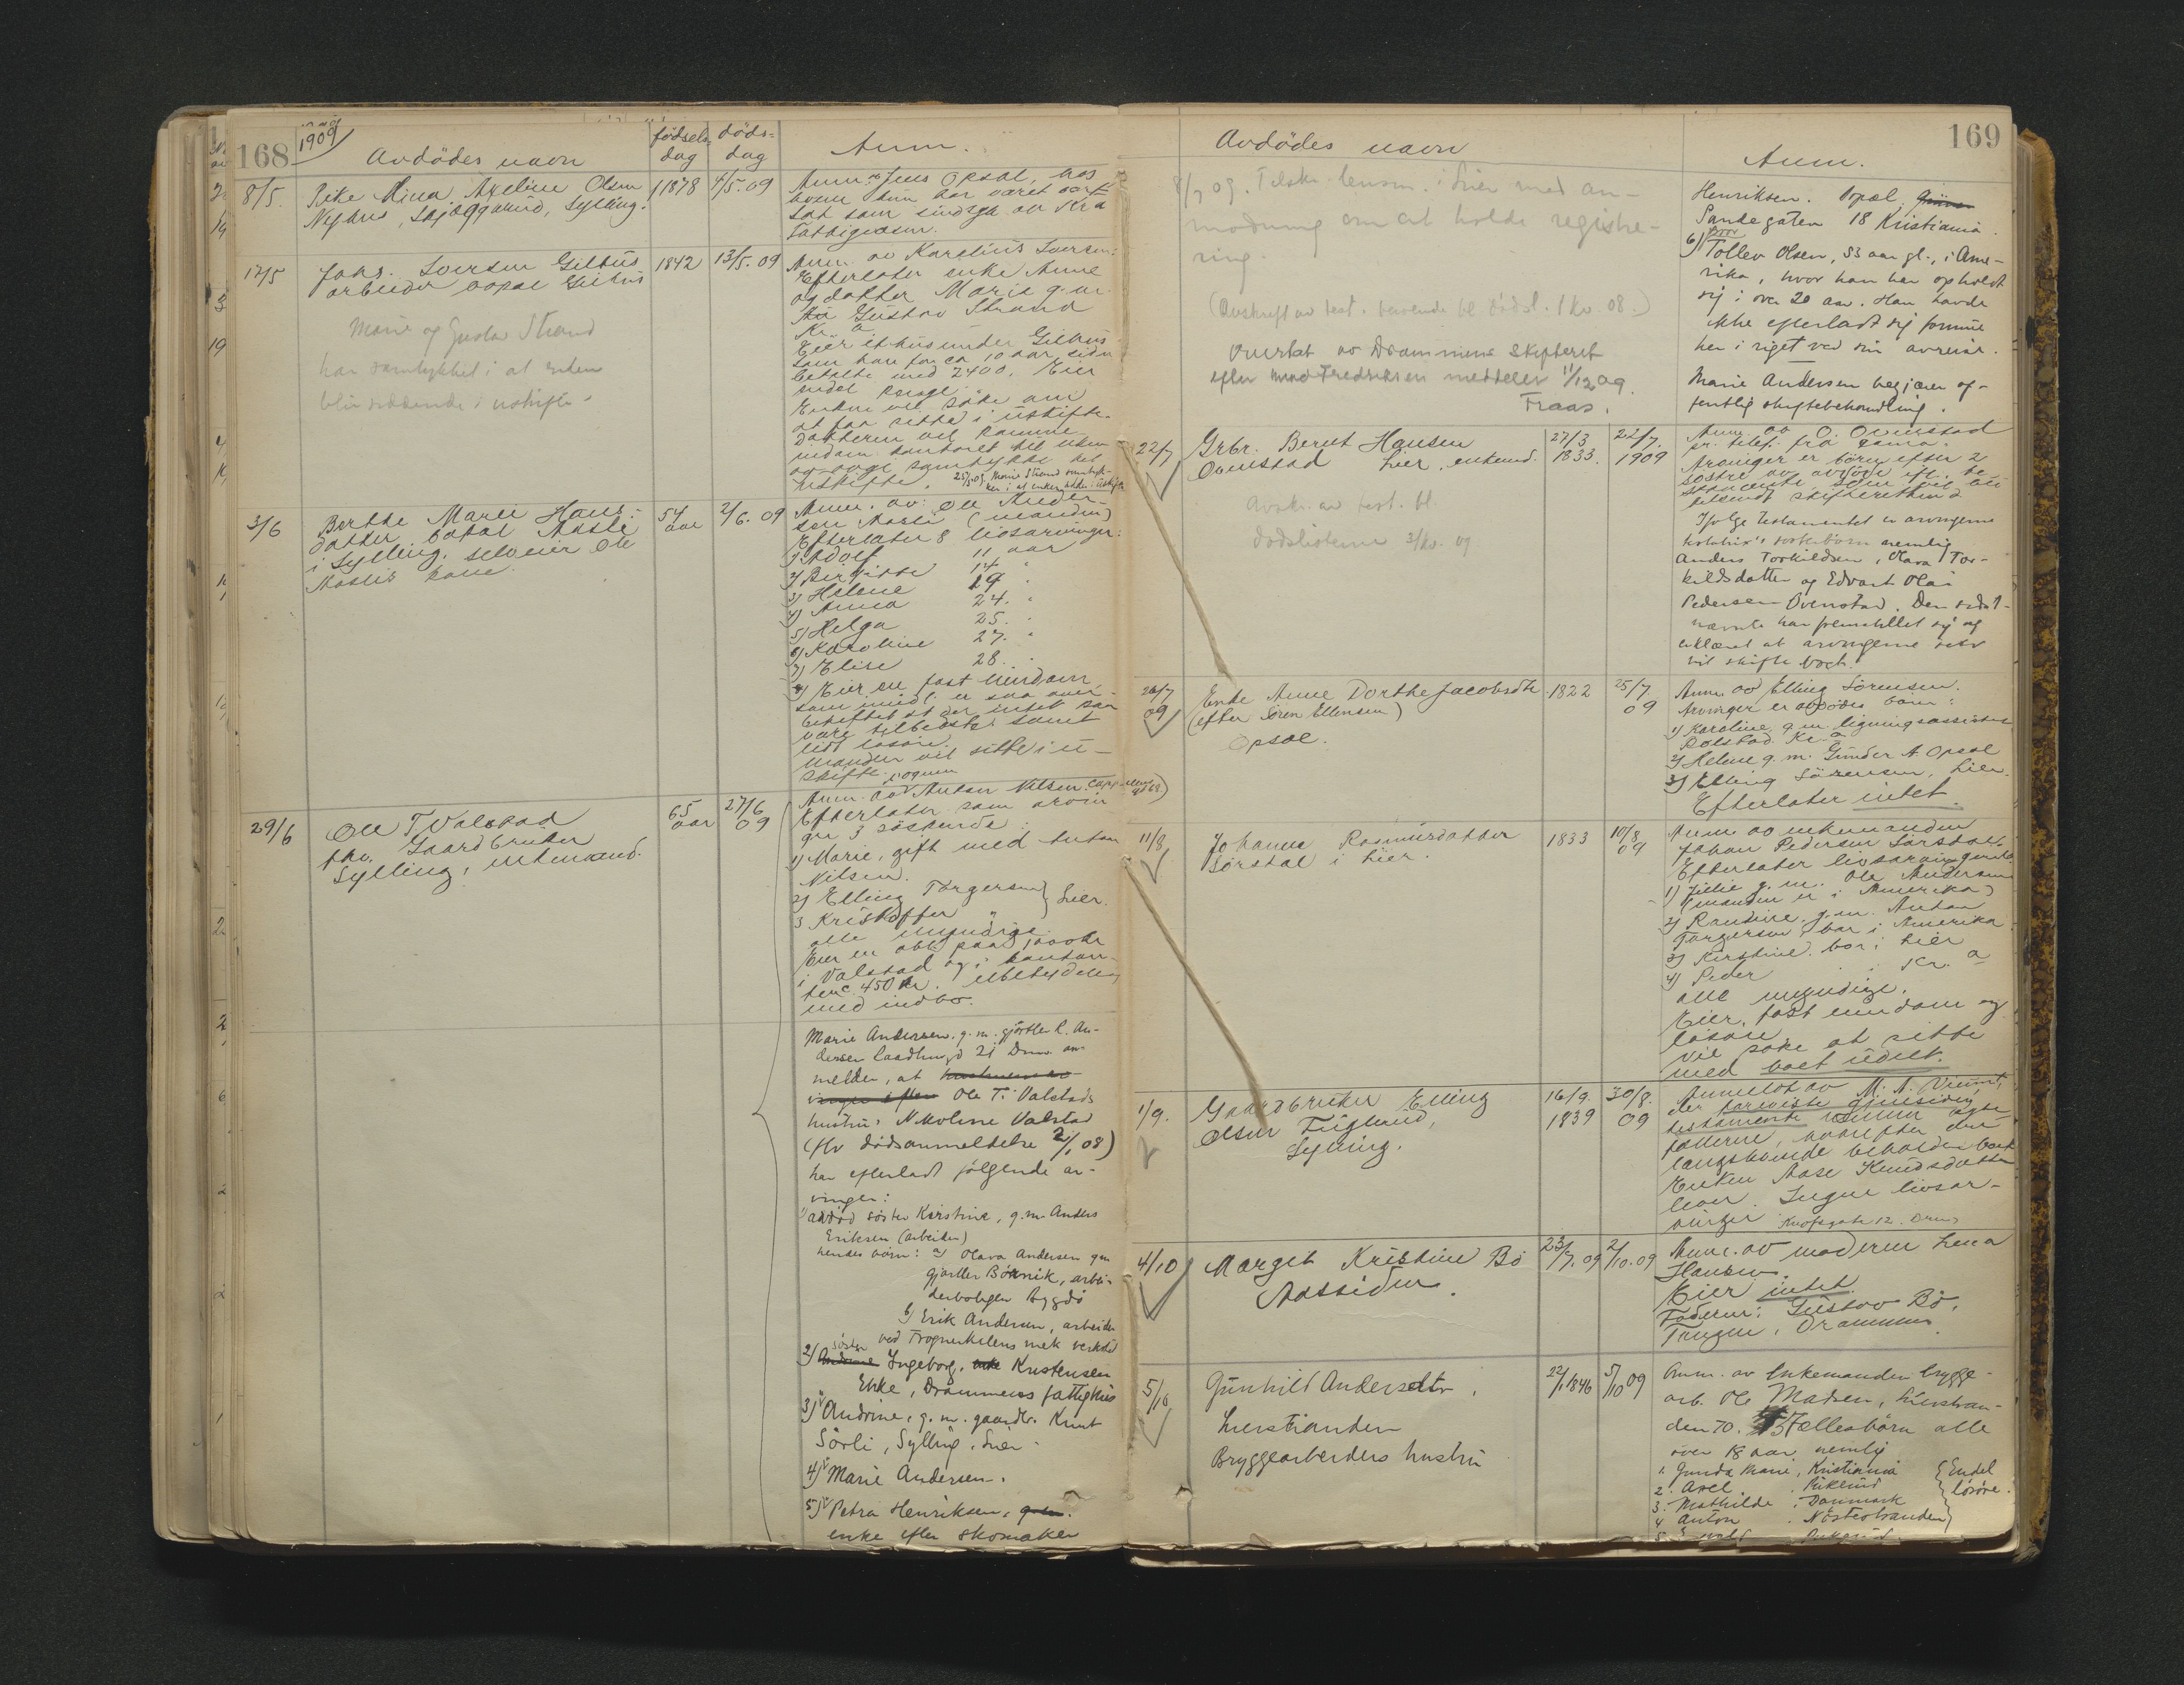 168
1909
Avdödes navn
födsels-
dag
döds-
dag
Anm.
8/5.
Pike Mina Axeline Olsen
Nyhus, Sylling.
1878
4/5. 09
Anm. av Jens Opsal, hos
hvem hun har været bort
sat som sindsyk av Kr.a
fattigvæsen.
12/5
Johs. Iversen Gilhus
arbeider bopæl Gilhus
1842
13/5. 09
Anm. av Karelius Iversen:
Efterlater enke Anne
og datter Marie g. m.
Gustav Strand
Kr. a.
Eier et hus under Gilhus
som han for ca 10 aar siden
betalte med 2400. Eier
Enken vil söke om
at faa sitte i uskifte.
Datteren vil komme
indom kontoret til uken
og avgi samtykke til
uskifte.
Marie og Gustav Strand
har samtykket i at enken
blir siddende i uskifte
3/6
Berthe Marie Hans-
datter bopæl Aasli
i Sylling, selveier Ole
Aaslis kone.
54
aar
2/6. 09
Anm. av: Ole Ander-
sen Aasli (manden)
Efterlater 8 livsarvinger:
1) Adolf 11 aar
2) Bergitte 14 "
3) Helene 19 "
4) Anna 24. "
5) Helga 25. "
6) Karoline 27. "
7) Elise 28. "
Eier en fast eiendom,
som imidl. er saa over-
beheftet at der intet kan
være tilbedste samt
lidt lösöre.
Manden vil sitte i u-
skifte.
29/6
Ole T. Valstad
fhv. Gaardbruker
Sylling, enkemand.
65
aar
27/6
09
Anm. av Anton Nilsen
Efterlater som arvin
ger 3 söskende:
1) Marie, gift med Anton
Nilsen.
2) Elling Torgersen } Lier.
3 Kristoffer "
alle myndige
Eier en obl. paa 1000 kr
i Valstad og i kontan-
ter c. 450 kr. ubetydelig
med indbo.
Marie Andersen. g. m. gjörtler C. An-
dersen 21 Drm. an-
melder, at
Ole T. Valstads
hustru: Nikoline Valstad
(flv dödsanmeldelse 2/1 08)
har efterladt fölgende ar-
vinger:
1) avdöd söster Kirstine, g. m. Anders
Eriksen (arbeider)
hendes börn: a) Olava Andersen gm
gjörtler
b) Erik Andersen, arbeider
ved mek verksted
2) söster Ingeborg, Kristensen
Enke, Drammens fattighus
3) " Andrine, g. m. gaardbr. Knut
Sörli, Sylling, Lier.
4) " Marie Andersen.
5) " Petra Henriksen,
enke efter skomaker
169
Avdödes navn
Anm.
8/7 09. Tilskr. lensm. i Lier med an-
modning om at holde registre-
ring.
(Avskrift av test. beroende bl. dödsl. 1 kv 08.)
Overlat av Drammens Skifteret
11/12 09.
Fraas.
Henriksen. Bopæl
Sandegaten 18 Kristiania.
6) bror Tollev Olsen, 53 aar gl., i Ame-
rika, hvor han har opholdt
sig i over 20 aar. Han havde
ikke efterladt sig formue
her i riget ved sin avreise.
Marie Andersen begjærer of-
fentlig skiftebehandling.
22/7
Grbr. Bernt Hansen
Ovenstad Lier, enkemd.
27/3
1833.
22/7.
1909
Anm. av O. Ovenstad
Arvinger er börn efter 2
söstre av avdöde
Ifölge testamentet er arvingerne
sösterbörn nemlig
Anders Torkildsen, Olava Tor-
kildsdatter og Edvart Olai
Pedersen Ovenstad. Den sidst-
nævnte har fremstillet sig og
erklæret at arvingerne selv
vil skifte boet.
Avskr. av test. bl.
dödslisterne 3/kv. 09
26/7
09
Enke Anne Dorthe Jacobsdtr
(efter Sören Ellensen)
Opsal.
1822
25/7.
09
Anm. av Elling Sörensen.
Arvinger er avdödes börn:
1) Karoline g. m. ligningsassistent
Rolstad. Kr.a
2) Helene g. m. Gunder A. Opsal
3) Elling Sörensen, Lier.
Efterlater intet.
11/8
Johanne Rasmusdatter
Sörsdal i Lier.
1833
10/8.
09
Anm. av enkemanden
Johan Pedersen Sörsdal.
Efterlater livsarvinger:
1) Julie g. m. Ole Andersen
(manden er i Amerika)
2) Randine g. m. Anton
Torgersen bor i Amerika
3) Kirstine bor i Lier
4) Peder " i Kr. a
alle myndige.
Eier fast eiendom og
lösöre
vil söke at sitte
med boet udelt.
1/9.
Gaardbruker Elling
Olsen Fuglerud,
Sylling.
16/9.
1839
30/8.
09
Anmeldt av M. A. Vinnes,
der foreviste gjensidig
testamente mellem ægte
fællerne, hvorefter den
længstlevende beholder boet
Enken Aase Knudsdatter
lever. Ingen livsar-
vinger.
4/10
Margit Kristine Bö
Aassiden.
23/7. 09
2/10. 09
Anm. av moderen Lena
Hansen.
Eier intet.
Faderen: Gustav Bö,
Tangen, Drammen.
5/10
Gunhild Andersdtr,
Lierstranden
Bryggearbeiders hustru
22/1 1846
5/10 09
Anm. av Enkemanden brygge-
arb. Ole Madsen, Lierstran-
den 70. 5 Fællesbörn alle
over 18 aar nemlig
1. Gunda Marie, Kristiania
2. Axel
3. Mathilde, Danmark
4 Anton . Nöstestranden
{Endel
lösöre.